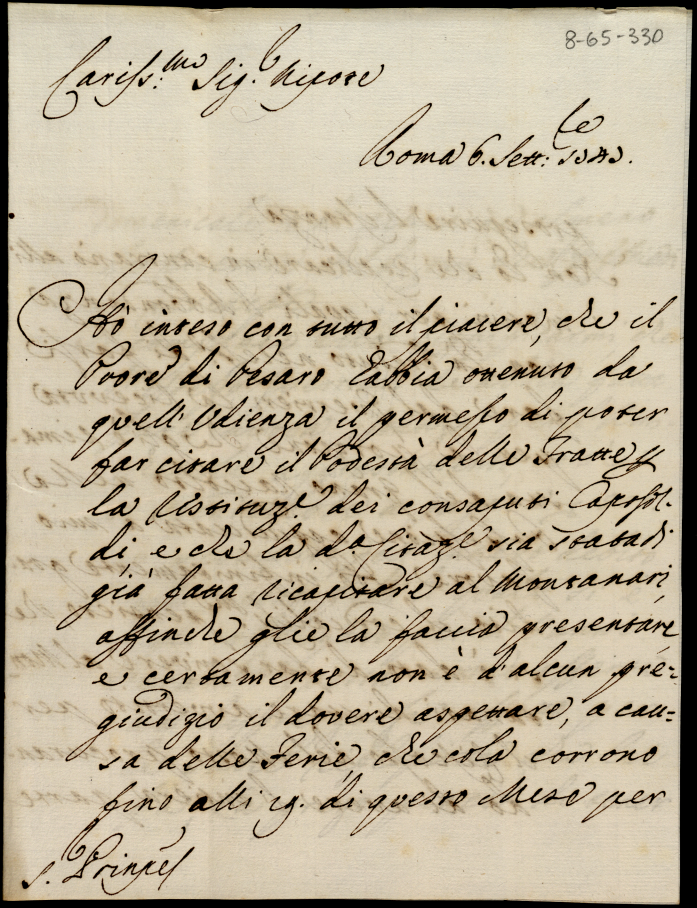 8-65-330
Cariss:mo Sig.r Nipote
Roma 6. Sett:
Hò inteso con tutto il piacere, che il
Prore di Pesaro habbia ottenuto da
quell'Udienza il permesso di poter
far citare il Podestà delle Fratte p
la restituz.e dei consaputi Caposol-
di, e che la d.a Citaz.e sia stata di
già fatta ricapitare al Montanari,
affinchè glie la faccia presentare,
e certamente non è d'alcun pre=
giudizio il dovere aspettare, a cau=
sa delle Ferie che colà corrono
fino alli 19. di questo Mese per
S.r